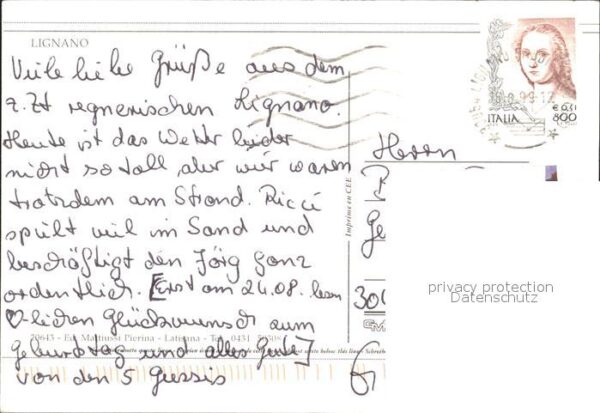 LIGNANO
Viele liebe Grüße aus dem
z.Zt regnerischen Lignano.
Heute ist das Wetter leider
nicht so toll, aber wir waren
trotzdem am Strand. Ricci
spielt viel im Sand und
beschäftigt den Jörg ganz
ordentlich. [Erst am 24.08. lesen
♡-lichen Glückwunsch zum
Geburtstag und alles Gute]
von den 5
Herrn
ITALIA
€ 0,41
800
Imprimé en CEE
70643 - Ed. Mattiussi Pierina - Latisana - Tel. 0431
privacy protection
Datenschutz